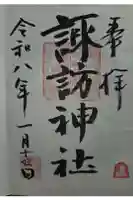 奉拝
諏訪神社
令和八年一月十一日